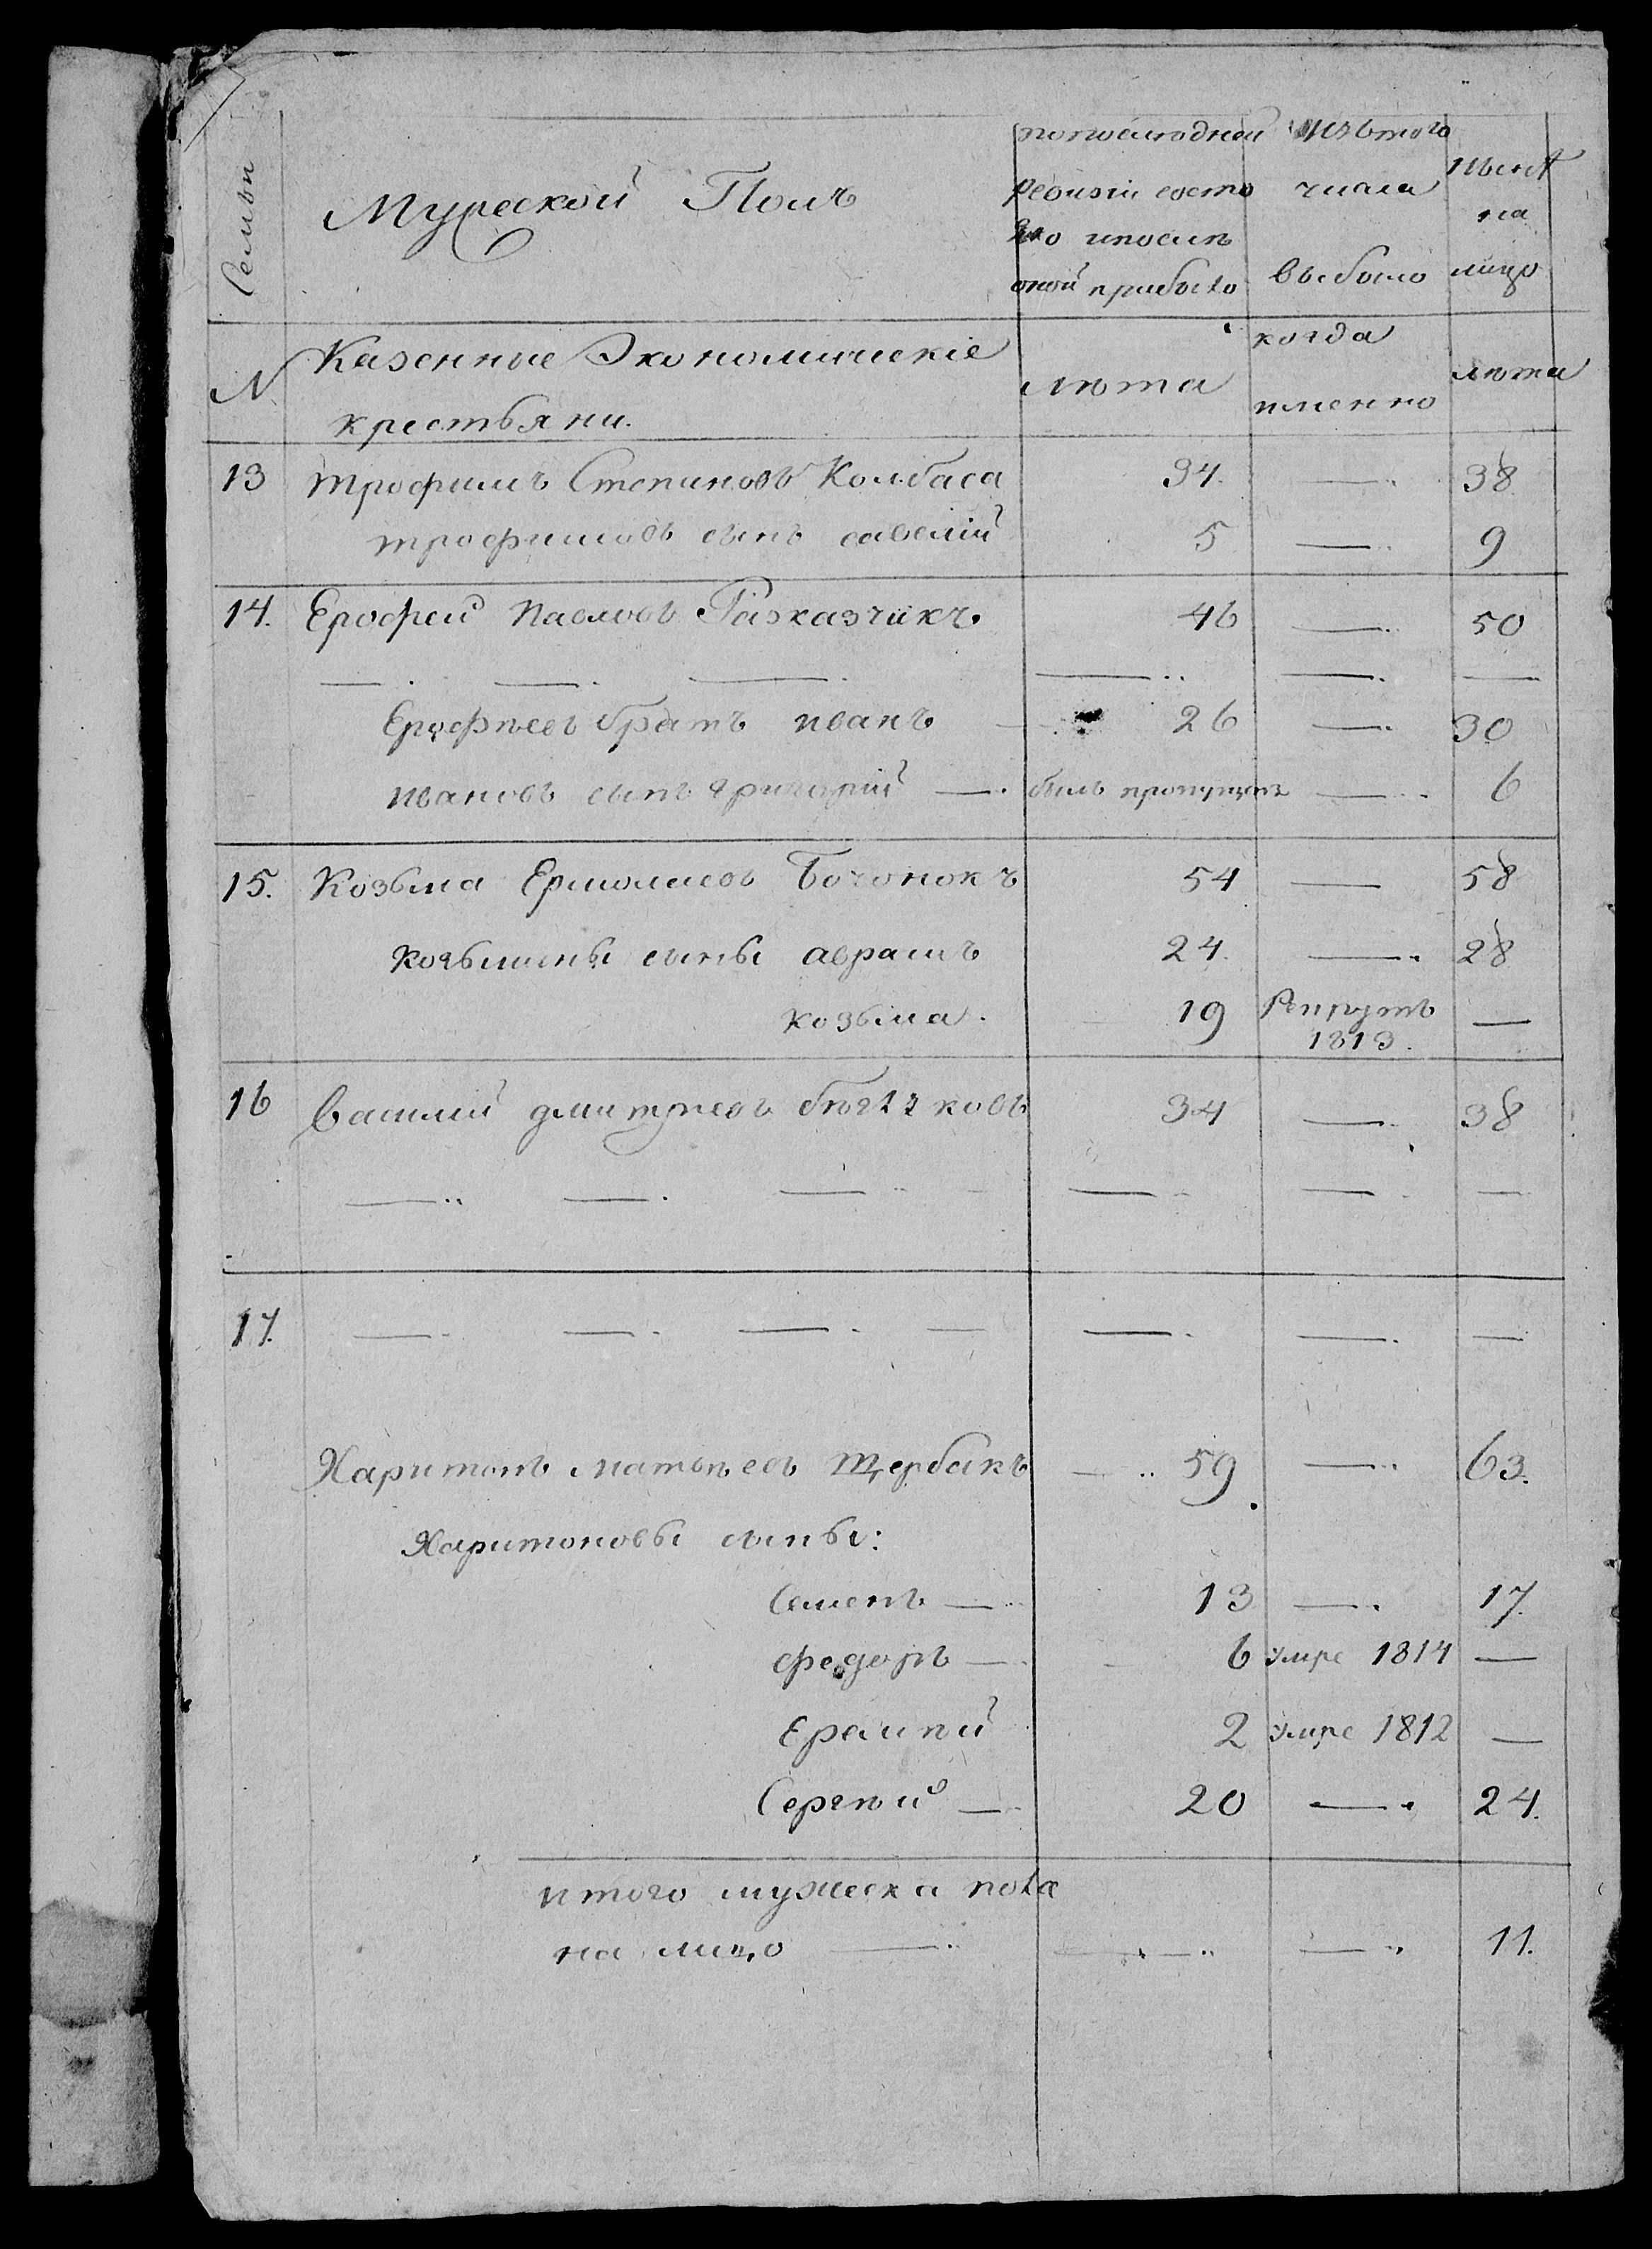 Семьи
Мужеской Полъ
по последней ревизіи состояло и после оной прибыло
изъ того числа выбыло
ныне на лицо
N
Казенные Экономическіе крестьяни.
лѣта
когда именно
лѣта
13 трофимъ Степановъ Колбаса 34. — 38
трофимовъ сынъ савелій 5 — 9
14. Ерофей павловъ Разказчикъ. 46 — 50
— — — — — —
Ерофѣевъ братъ иванъ 26 — 30
ивановъ сынъ григорій — былъ пропущенъ — 6
15. Козьма Ермолаевъ Бочонокъ 54 — 58
козьмины сыны аврамъ 24. — 28
козьма. 19 Рекрутъ 1813. —
16 василий дмитриевъ 34 — 38
— — — — — —
17. — — — — — — —
Харитонъ матвѣевъ Щербакъ — 59 — 63.
Харитоновы сыны:
Семенъ — 13 — 17.
федоръ — 6 умре 1814 —
Еремѣй 2 умре 1812 —
Сергѣй — 20 — 24.
итого мужеска пола
на лицо — — — 11.